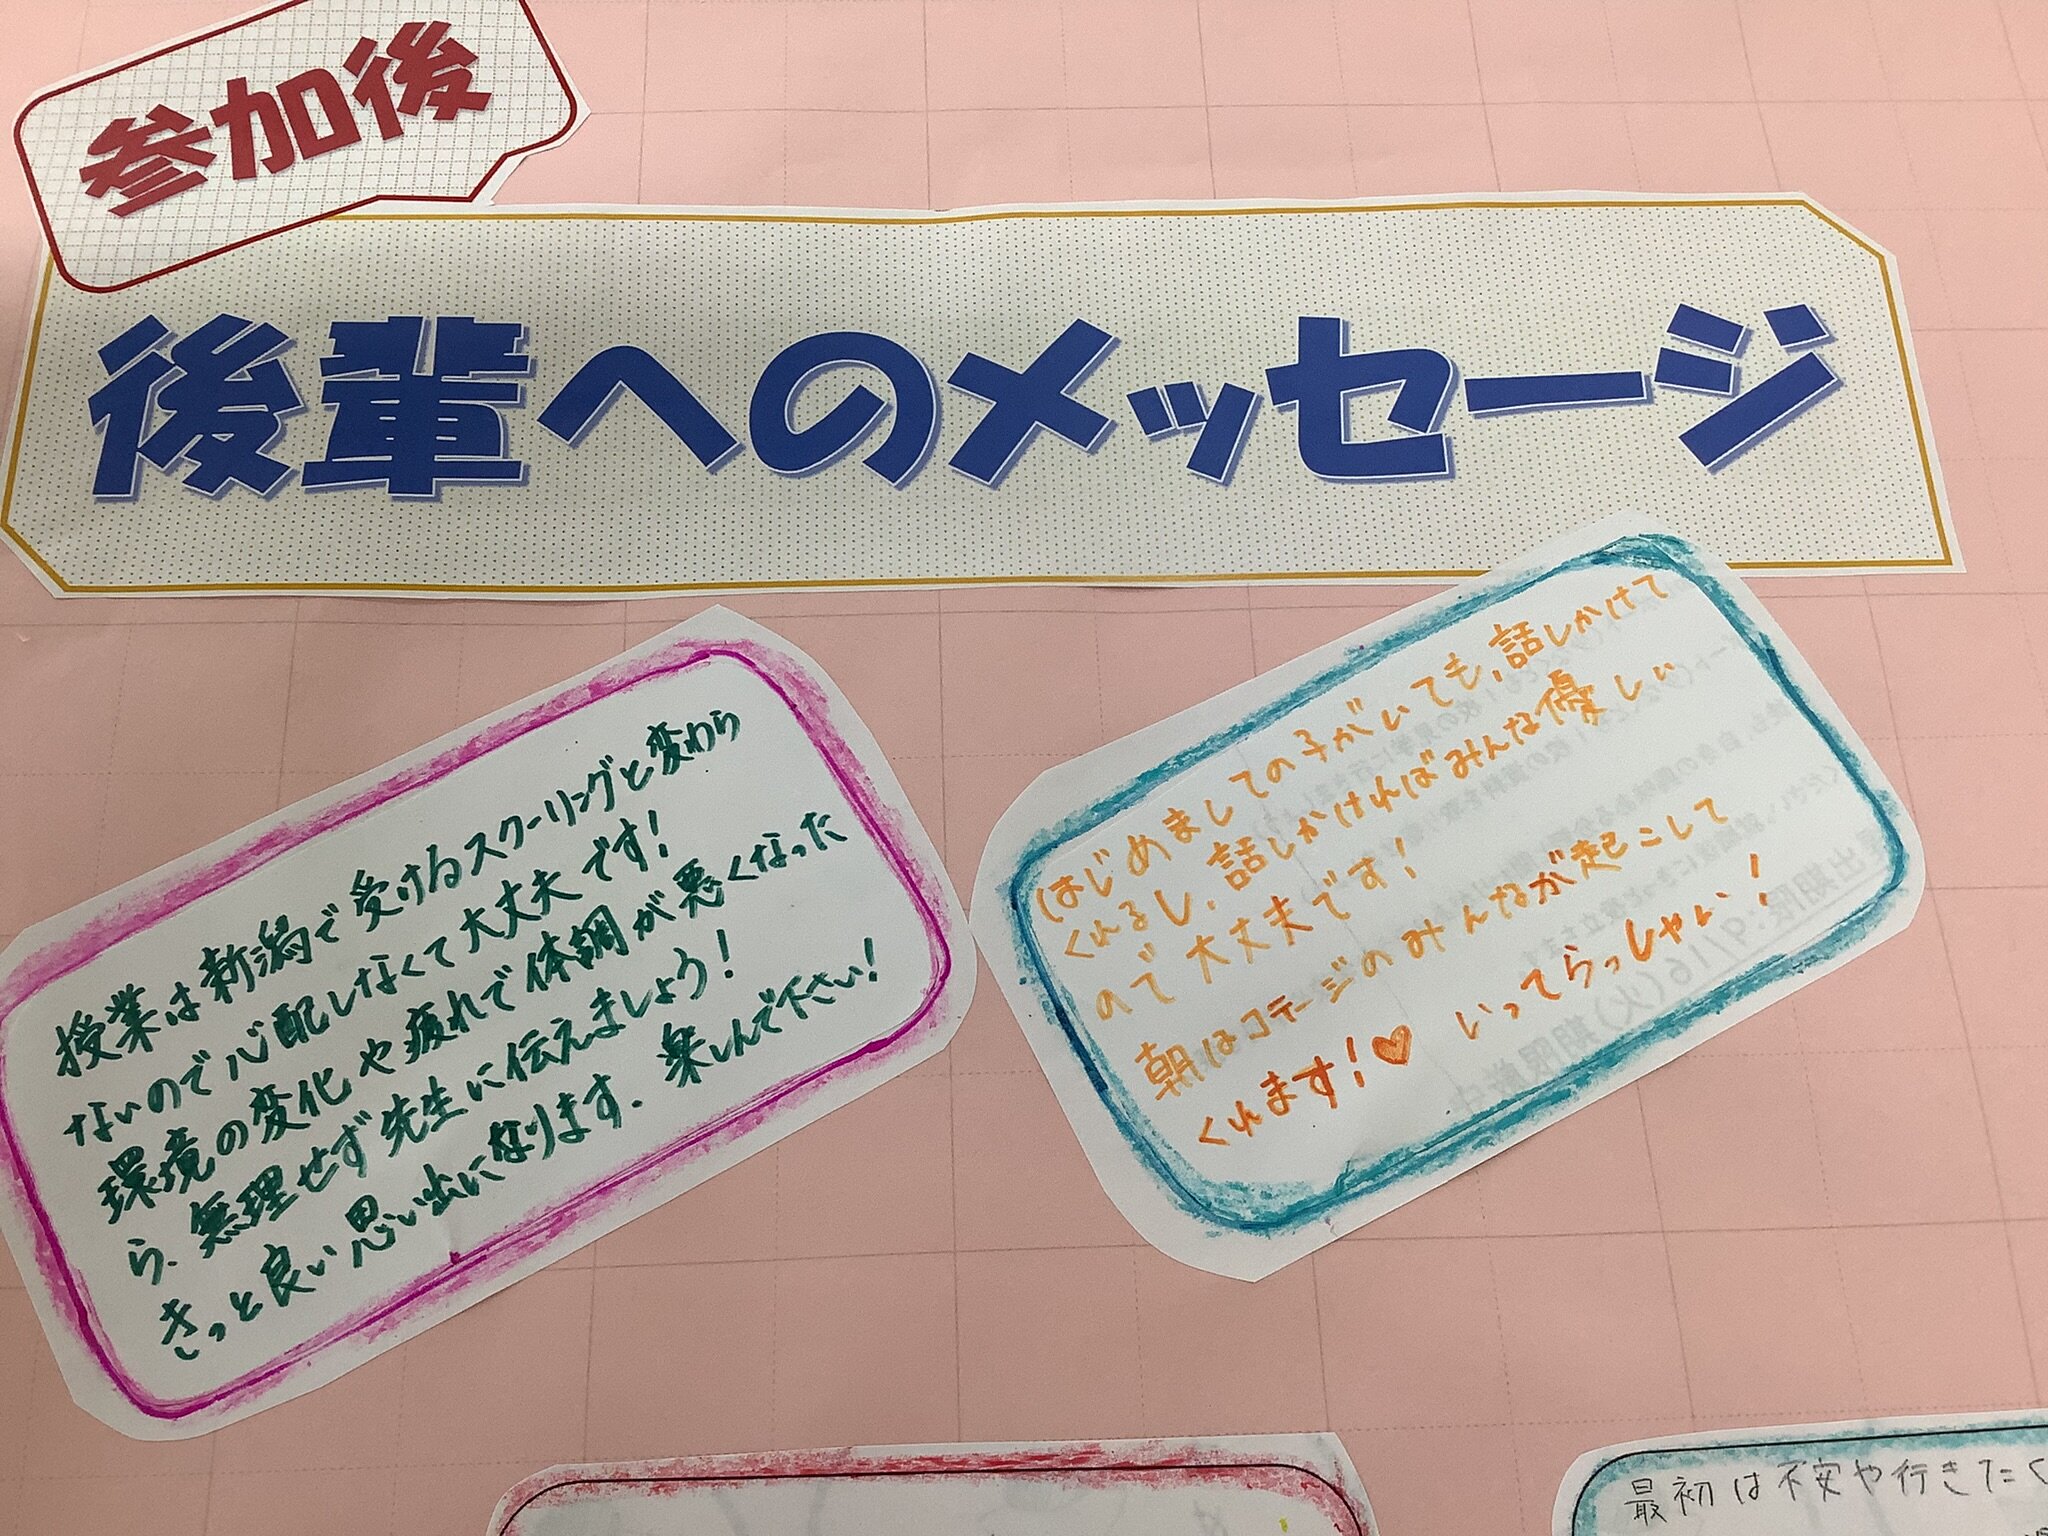 参加後
後輩へのメッセージ
授業は新潟で受けるスクーリングと変わら
ないので心配しなくて大丈夫です!
環境の変化や疲れで体調が悪くなった
ら、無理せず先生に伝えましょう!
きっと良い思い出になります. 楽しんで下さい!
はじめましての子がいても、話しかけて
くれるし、話しかければみんな優しい
ので大丈夫です!
朝はコテージのみんなが起こして
くれます!♡ いってらっしゃい!
最初は不安や行きたく